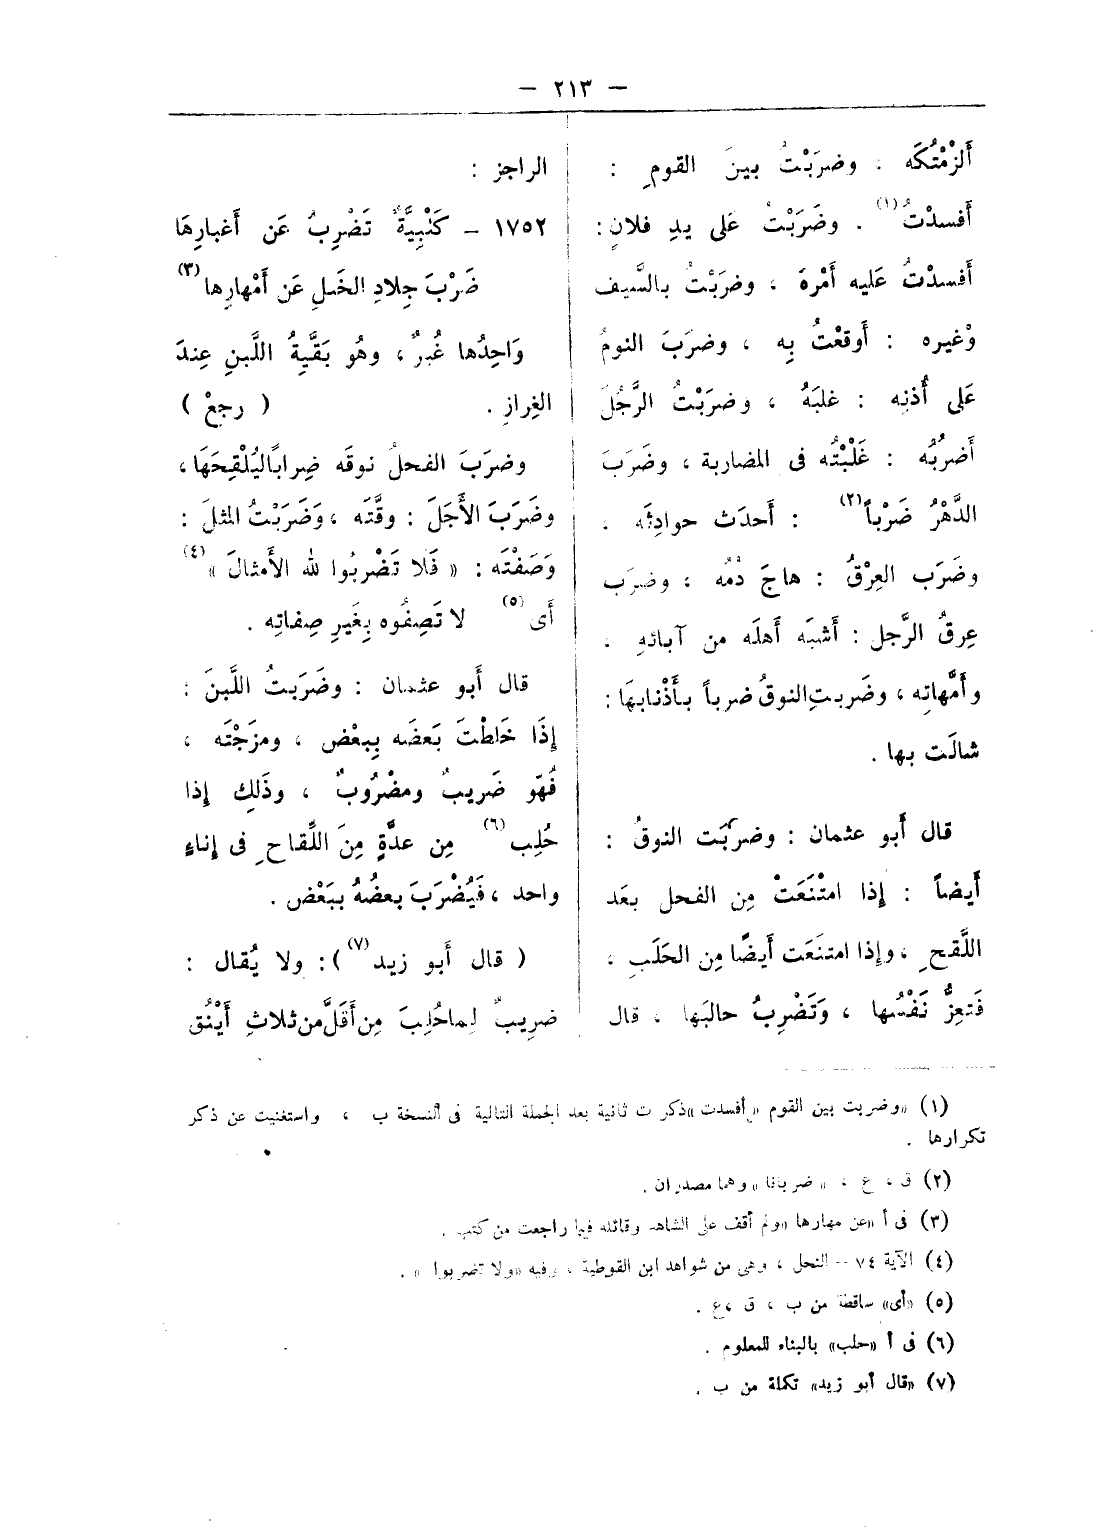 — ٢١٣ —
أَلزَمْتُكَه ، وضرَبْتُ بينَ القومِ :
أَفسدْتُ (١) . وضَرَبْتُ عَلى يدِ فلانٍ :
أَفسدْتُ عَليه أَمْرهَ ، وضرَبْتُ بالسَّيف
وْغيره : أَوقعْتُ بِه ، وضرَبَ النومُ
عَلى أُذنِه : غلبَهُ ، وضرَبْتُ الرَّجُلَ
أَضرُبُه : غَلَبْتُه فى المضاربة ، وضَرَبَ
الدَّهْرُ ضَرْباً (٢) : أَحدَث حوادِثَه .
وضَرَب العِرْقُ : هاجَ دْمُه ، وضرَب
عِرقُ الرَّجل : أَشبَه أَهلَه من آبائهِ .
وأُمَّهاتِه ، وضَربتِ النوقُ ضرباً بأَذْنابهَا :
شالَت بها .
قال أَبو عثمان : وضرَبَت النوقُ :
أَيضاً : إِذا امتْنَعَتْ مِن الفحل بعَد
اللَّقحِ ، وإِذا امتنَعَت أَيضًا مِن الحَلَبِ ،
فَتعِزُّ نَفْسُها ، وَتَضْرِبُ حالبَها ، قال
الراجز :
١٧٥٢ – كَنْبِيَّةٌ تَضْرِبُ عَن أَغبارِهَا
ضَرْبَ جِلادِ الخَيلِ عَن أَمْهارِها (٣)
وَاحِدُها غُبرٌ ، وهُو بَقَّيةُ اللَّبنِ عِندَ
الغِرازِ . ( رجعْ )
وضرَبَ الفحلُ نوقَه ضِرابًا ليُلْقِحَهَا ،
وضَرَبَ الأَجَلَ : وقَّتَه ، وَضَرَبْتُ المثلَ :
وَصَفْتَه : « فَلا تَضْربُوا لله الأَمثالَ » (٤)
أَى (٥) لا تَصِفُوه بِغَيرِ صِفاتِه .
قال أَبو عثمان : وضَرَبتُ اللَّبنَ :
إِذَا خَلَطْتَ بَعضَه بِبعْضٍ ، ومزَجْتَه ،
فُهوَ ضَريبٌ ومضْرُوبٌ ، وذَلِك إِذا
حُلِب (٦) مِن عدَّةٍ مِنَ اللِّقاحِ فى إِناءٍ
واحد ، فَيُضْرَبَ بعضُهُ ببَعْض .
( قال أَبو زيد (٧) ) : ولا يُقال :
ضريبٌ لِما حُلِبَ مِن أَقَلَّ من ثلاثِ أَيْنُق
(١) «وضربت بين القوم «أفسدت» ذكرت ثانية بعد الجملة التالية فى النسخة ب ، واستغنيت عن ذكر
تكرارها .
(٢) ق ، ع ، « ضربانا » وهما مصدران .
(٣) فى أ «عن مهارها» ولم أقف على الشاهد وقائله فيما راجعت من كتب .
(٤) الآية ٧٤ – النحل ، وهى من شواهد ابن القوطية ، وفيه «ولا تضربوا » .
(٥) «أى» ساقطة من ب ، ق ،ع .
(٦) فى أ «حلب» بالبناء للمعلوم .
(٧) «قال أبو زيد» تكملة من ب .